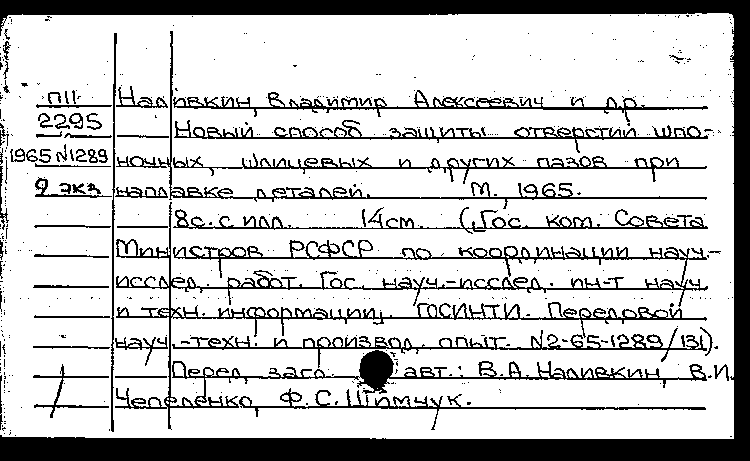 П11 Наливкин, Владимир Алексеевич и др.
2295 Новый способ защиты отверстий шпо-
1965 N1289 ночных, шлицевых и других пазов при
2 экз наплавке деталей. М., 1965.
8с. с илл. 14см. (Гос. ком. Совета
Министров РСФСР по координации науч.-
исслед. работ. Гос. науч.-исслед. ин-т науч.
и техн. информации. ГОСИНТИ. Передовой
науч.-техн. и производ. опыт. N2-65-1289/131).
Перед загл. авт.: В.А. Наливкин, В.И.
Чепеленко, Ф.С.